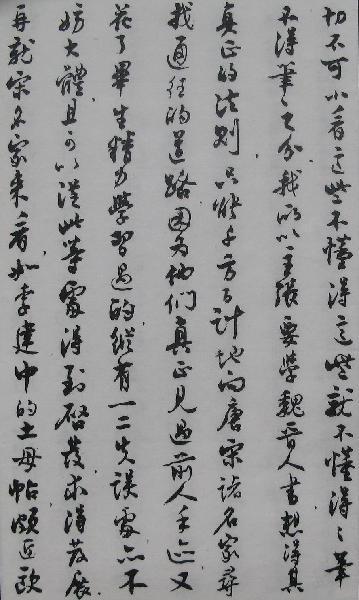 切不可小看這些不懂得這些就不懂得得筆
不得筆之分我所以主張要學魏晉人書想得其
真正的法則只能千方百計地向唐宋諸名家尋
找通往的道路因爲他們真正見過前人手迹又
花了畢生精力學習過的縱有一二失誤處亦不
妨大體且可以從此等處得到啓發求得發展
再就宋名家來看如李建中的土母帖頗近歐